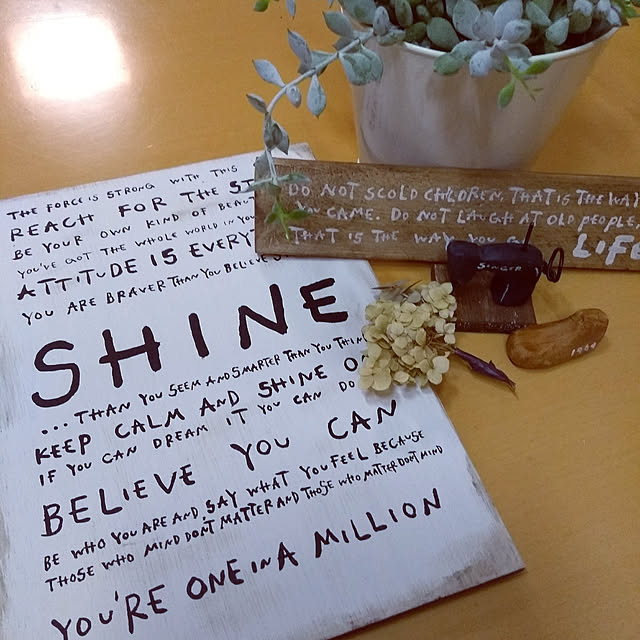 THE FORCE IS STRONG WITH THIS
REACH FOR THE ST
BE YOUR OWN KIND OF BEAU
YOU'VE GOT THE WHOLE WORLD IN YOU
ATTITUDE IS EVERYT
YOU ARE BRAVER THAN YOU BELIEVE
SHINE
... THAN YOU SEEM AND SMARTER THAN YOU THIN
KEEP CALM AND SHINE O
IF YOU CAN DREAM IT YOU CAN DO
BELIEVE YOU CAN
BE WHO YOU ARE AND SAY WHAT YOU FEEL BECAUSE
THOSE WHO MIND DON'T MATTER AND THOSE WHO MATTER DON'T MIND
YOU'RE ONE IN A MILLION
DO NOT SCOLD CHILDREN, THAT IS THE WAY
YOU CAME. DO NOT LAUGH AT OLD PEOPLE,
THAT IS THE WAY YOU G
LIFE
SINGER
1964